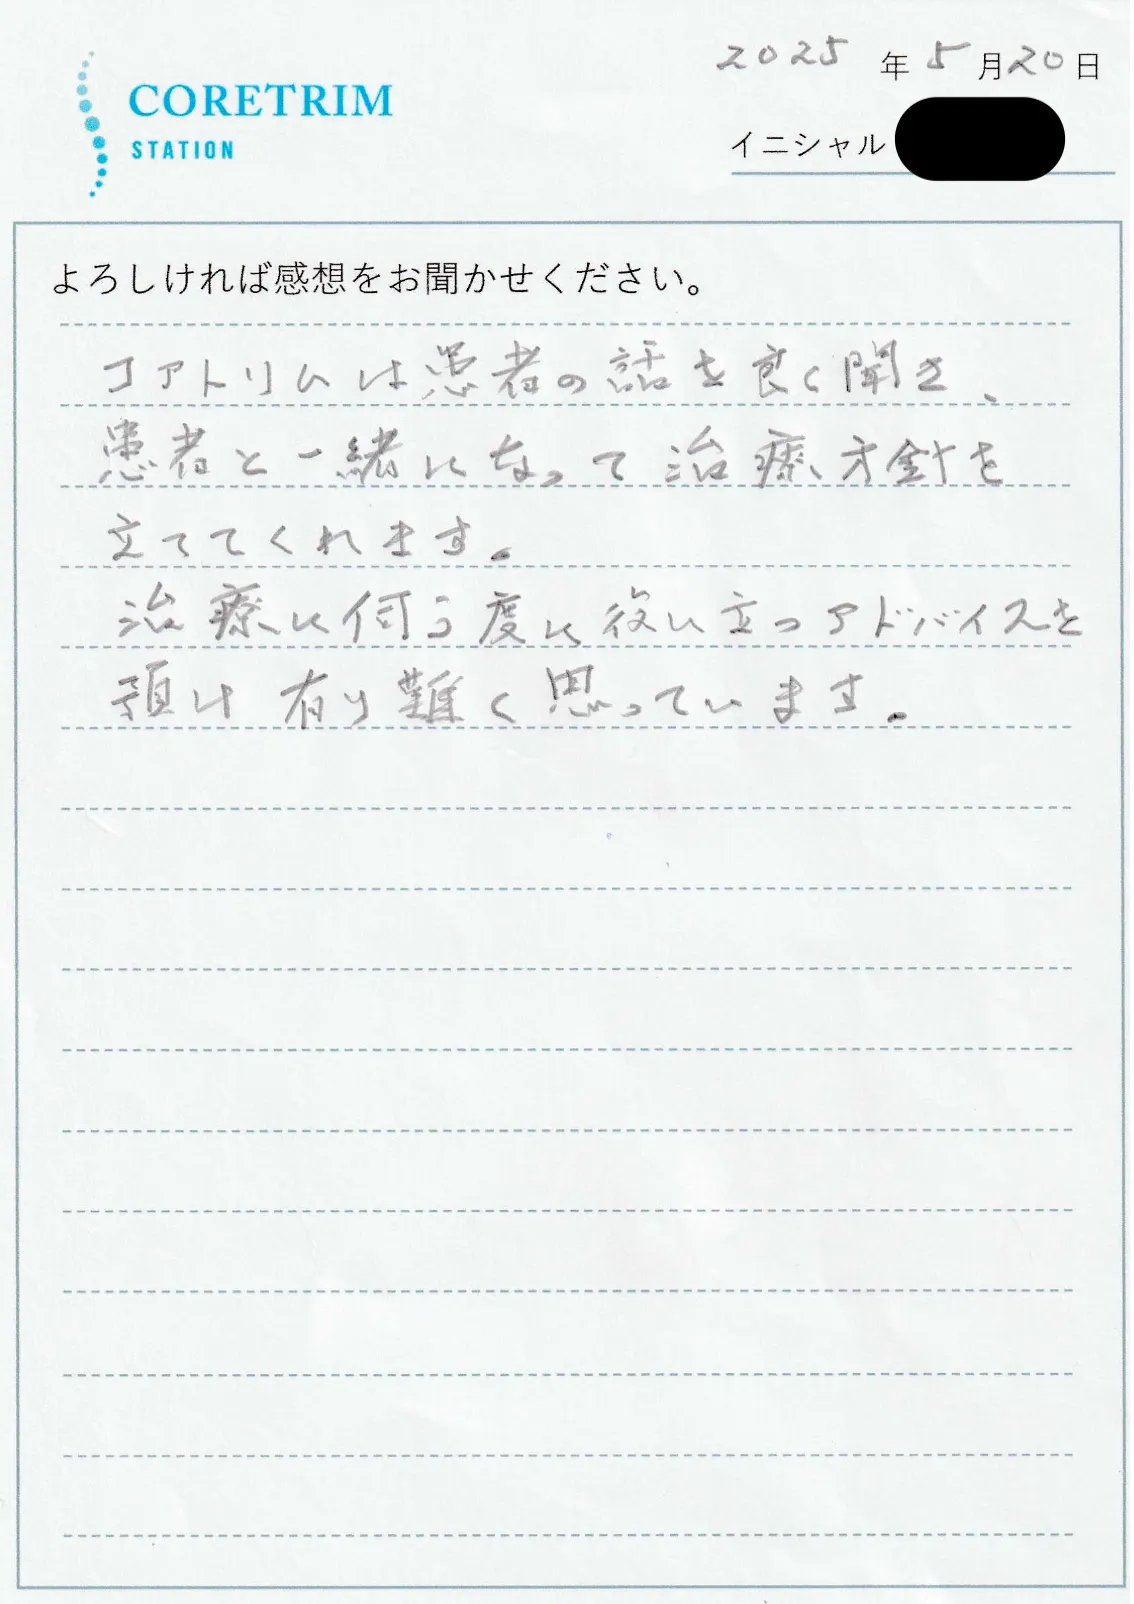 2025年5月20日
CORETRIM
STATION
イニシャル
よろしければ感想をお聞かせください。
コアトリムは患者の話を良く聞き、
患者と一緒になって治療方針を
立ててくれます。
治療に伺う度に役に立つアドバイスを
頂け有り難く思っています。